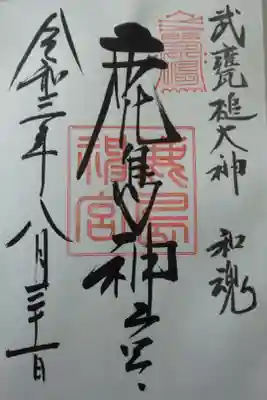 武甕槌大神 和魂
鹿島神宮
鹿島
神宮
令和三年八月三十一日